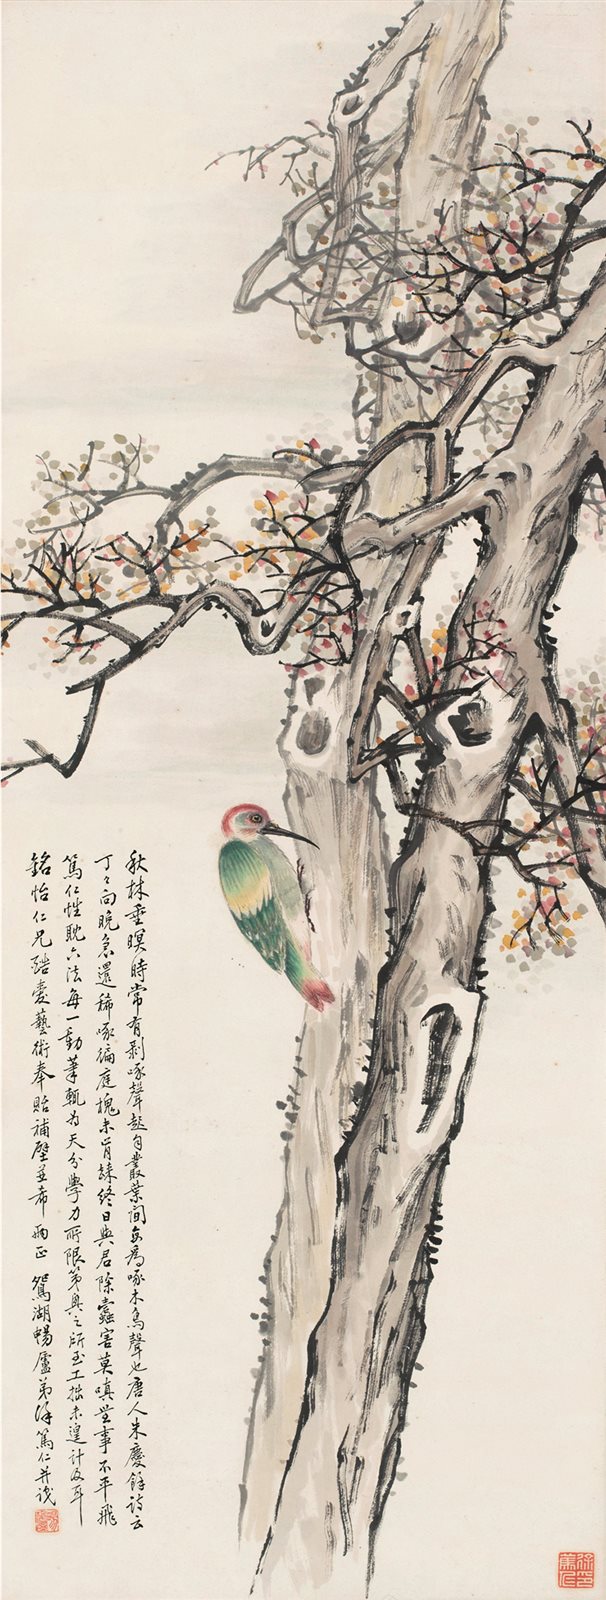 秋林垂暝時常有剥啄聲起自叢葉間多為啄木鳥聲也唐人朱慶餘詩云
丁々向晚急還稀啄徧庭槐未肯歸終日與君除蠹害莫嗔無事不平飛
篤仁性耽六法每一動筆輒為天分學力所限第興之所至工拙未遑計及耳
銘怡仁兄酷愛藝術奉貽補壁並希 兩正 鴛湖暢廬弟徐篤仁并識